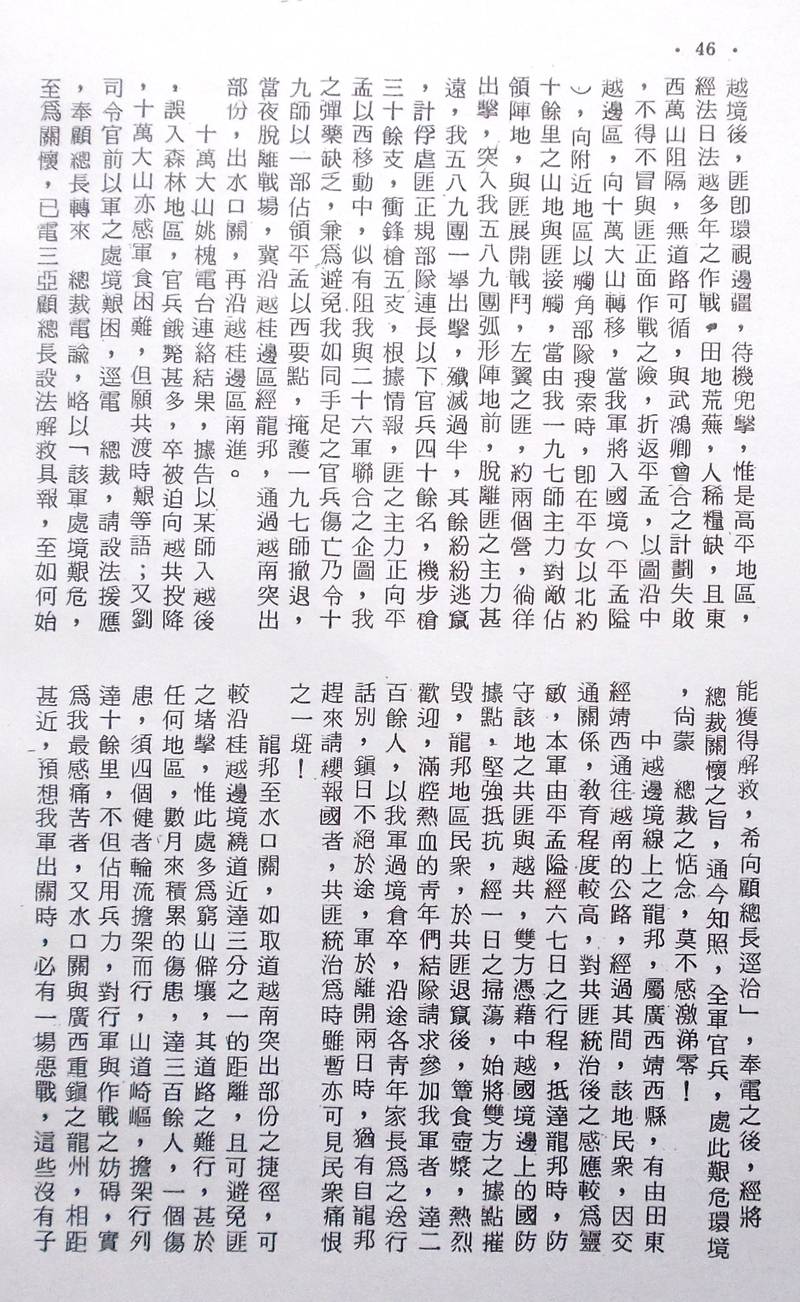 · 46 ·
越境後，匪卽環視邊疆，待機兜擊，惟是高平地區，
經法日法越多年之作戰，田地荒蕪，人稀糧缺，且東
西萬山阻隔，無道路可循，與武鴻卿會合之計劃失敗
，不得不冒與匪正面作戰之險，折返平孟，以圖沿中
越邊區，向十萬大山轉移，當我軍將入國境（平孟隘
），向附近地區以觸角部隊搜索時，卽在平女以北約
十餘里之山地與匪接觸，當由我一九七師主力對敵佔
領陣地，與匪展開戰鬥，左翼之匪，約兩個營，徜徉
出擊，突入我五八九團弧形陣地前，脫離匪之主力甚
遠，我五八九團一擧出擊，殲滅過半，其餘紛紛逃竄
，計俘虐匪正規部隊連長以下官兵四十餘名，機步槍
三十餘支，衝鋒槍五支，根據情報，匪之主力正向平
孟以西移動中，似有阻我與二十六軍聯合之企圖，我
之彈藥缺乏，兼爲避免我如同手足之官兵傷亡乃令十
九師以一部佔領平孟以西要點，掩護一九七師撤退，
當夜脫離戰場，冀沿越桂邊區經龍邦，通過越南突出
部份，出水口關，再沿越桂邊區南進。
十萬大山姚槐電台連絡結果，據告以某師入越後
，誤入森林地區，官兵餓斃甚多，卒被迫向越共投降
，十萬大山亦感軍食困難，但願共渡時艱等語；又劉
司令官前以軍之處境艱困，逕電　總裁，請設法援應
，奉顧總長轉來　總裁電諭，略以「該軍處境艱危，
至爲關懷，已電三亞顧總長設法解救具報，至如何始
能獲得解救，希向顧總長逕洽」，奉電之後，經將
總裁關懷之旨，通令知照，全軍官兵，處此艱危環境
，尙蒙　總裁之惦念，莫不感激涕零！
中越邊境線上之龍邦，屬廣西靖西縣，有由田東
經靖西通往越南的公路，經過其間，該地民衆，因交
通關係，敎育程度較高，對共匪統治後之感應較爲靈
敏，本軍由平孟隘經六七日之行程，抵達龍邦時，防
守該地之共匪與越共，雙方憑藉中越國境邊上的國防
據點，堅強抵抗，經一日之掃蕩，始將雙方之據點摧
毀，龍邦地區民衆，於共匪退竄後，簞食壺漿，熱烈
歡迎，滿腔熱血的靑年們結隊請求參加我軍者，達二
百餘人，以我軍過境倉卒，沿途各靑年家長爲之送行
話別，鎭日不絕於途，軍於離開兩日時，猶有自龍邦
趕來請纓報國者，共匪統治爲時雖暫亦可見民衆痛恨
之一斑！
龍邦至水口關，如取道越南突出部份之捷徑，可
較沿桂越邊境繞道近達三分之一的距離，且可避免匪
之堵擊，惟此處多爲窮山僻壤，其道路之難行，甚於
任何地區，數月來積累的傷患，達三百餘人，一個傷
患，須四個健者輪流擔架而行，山道崎嶇，擔架行列
達十餘里，不但佔用兵力，對行軍與作戰之妨碍，實
爲我最感痛苦者，又水口關與廣西重鎭之龍州，相距
甚近，預想我軍出關時，必有一場惡戰，這些沒有子